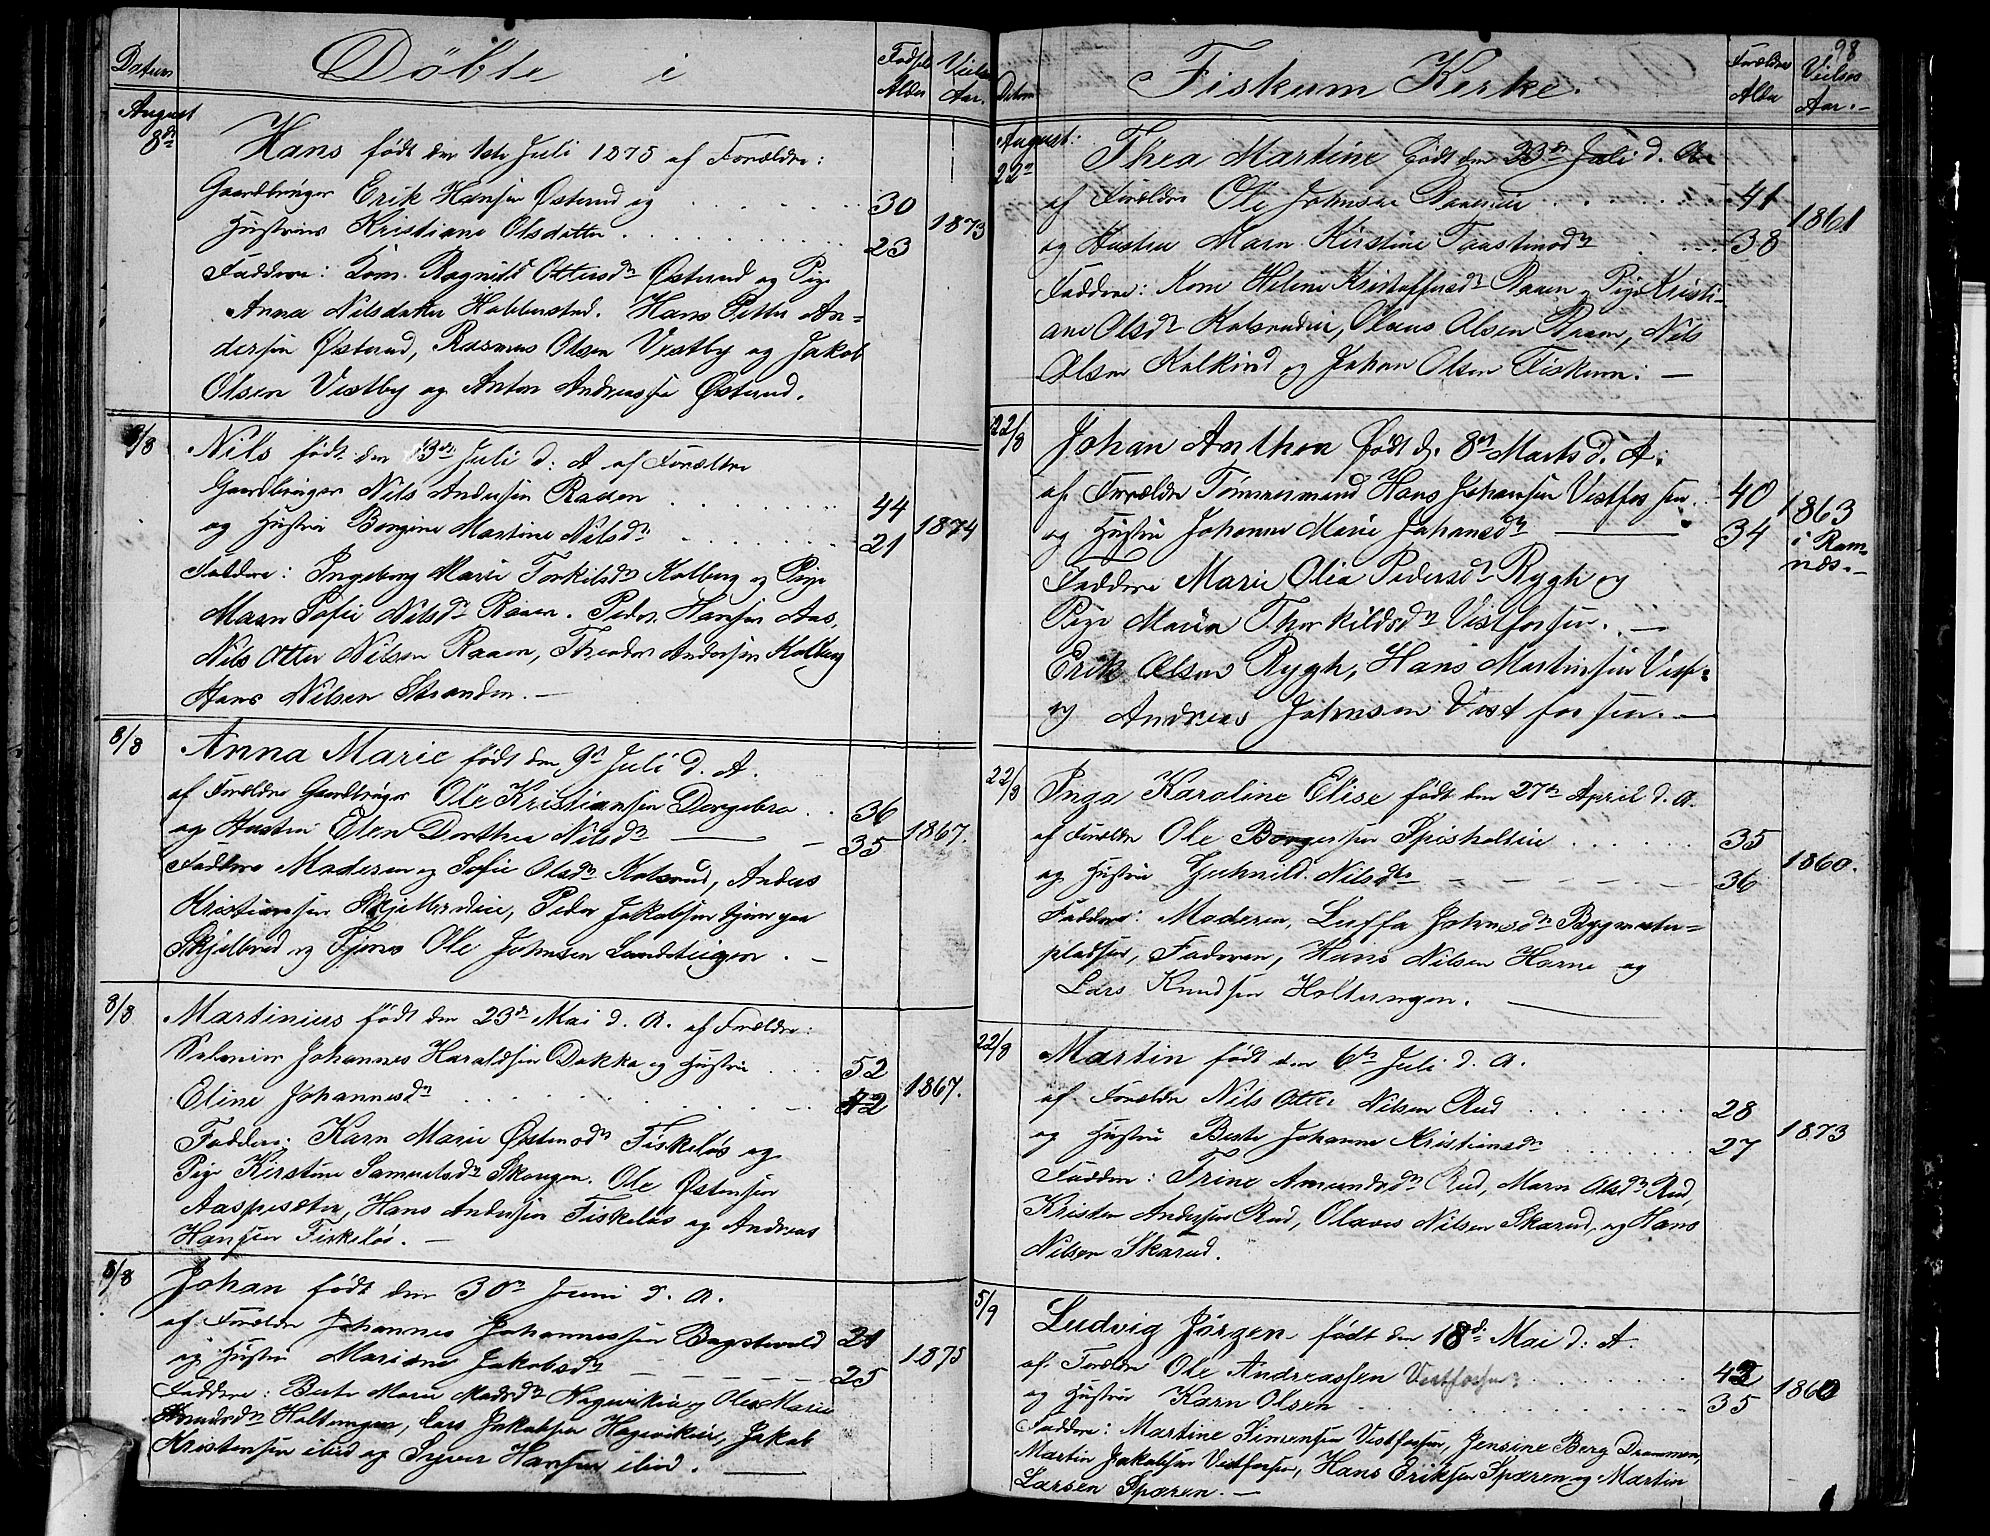 Datum
Döbte i
Fødsels
Alder
Vielses
Aar.
August
8de
Hans født den 1ste Juli 1875 af Forældre:
Gaardbruger Erik Hansen Østerud og 30
Hustru Kristiane Olsdatter 23 1873
Faddere: Kone Ragnild Ottersdr Østerud og Pige
Anna Nilsdatter Habberstad. Hans Petter An=
dersen Østerud, Rasmus Olsen Vestby og Jakob
Olsen Vestby og Anton Andreassen Østerud.
8/8
Nils født den 13de Juli d. A af Forældre
Gaardbruger Nils Andersen Raaen 44
og Hustru Borgine Martine Nilsdr 21 1874
Faddere: Ingeborg Marie Torkilsdr Kolberg og Pige
Maren Sofie Nilsdr Raaen. Peder Hansen Aas,
Nils Otter Nilsen Raaen, Theodor Andersen Kolberg
Hans Nilsen Stranden.
8/8
Anna Marie født den 9de Juli d. A.
af Forældre Gaardbruger Ole Kristiansen Dorgebro 36
og Hustru Elen Dorthea Nilsdr 35 1867.
Faddere Moderen og Sofie Olsdr Kolsrud, Anders
Kristiansen Skjelbredeie, Peder Jakobsen
Skjelbred og Ole Johnsen Landsteigen.
8/8
Martinius født den 23de Mai d. A. af Forældre:
Johannes Haraldsen Dokka og Hustru 52
Eline Johannesdr 42 1867.
Faddere: Karn Marie Østensdr Fiskeløs og
Pige Kirstine Samuelsdr Skougen. Ole Østensen
Aaspesæter, Hans Andersen Fiskeløs og Andreas
Hansen Fiskeløs.
8/8
Johan født den 30te Juni d. A.
af Forældre Johannes Johannessen Bagstevold 21
og Hustru Mariane Jakobsdr 25 1875
Faddere: Berte Marie Madsdr Hagevikeie og Olea Marie
Amundsdr Holtungen, Lars Jakobsen Hagevikeie, Jakob
Kristensen ibid og Syver Hansen ibid.
98
Datum
Fiskum Kirke.
Forældres
Alder
Vielses
Aar.
August:
22de
Thea Martine født den 23de Juli d. A
af Forældre Ole Johnsen Raaeneie 41
og Hustru Maren Kirstine Taastensdr 38 1861
Faddere: Kone Helene Kristoffersdr Raaen, Pige Kristi-
ane Olsdr Kolsrudeie, Olaus Olsen Raaen, Nils
Olsen Kalkind og Johan Olsen Fiskum.
22/8
Johan Anthon Født d. 8de Marts d. A.
af Forældre Tømmermand Hans Johansen Vestfossen 40
og Hustru Johanne Marie Johansdr 34
1863
i Ram=
næs.
Faddere Marie Olea Pedersdr Rygh og
Pige Maria Thorkildsdr Vestfossen.
Erik Olsen Rygh, Hans Martinsen Vestf.
og Andreas Johnsen Vestfossen.
22/8
Inga Karoline Elise født den 27de April d. A.
af Forældre Ole Borgersen Spisholteie 35
og Hustru Gunhild Nilsdr 36 1860.
Faddere: Moderen, Luffa Johnsdr Bygmester=
pladsen, Faderen, Hans Nilsen Horne og
Lars Knudsen Holtungen.
22/8
Martin født den 6te Juli d. A.
af Forældre Nils Otter Nilsen Rud 28
og Hustru Berte Johanne Kristiansdr 27 1873
Faddere: Trine Amundsdr Rud, Maren Olsdr Rud,
Kristen Andersen Rud, Olaves Nilsen Skarud, og Hans
Nilsen Skarud.
5/9
Ludvig Jørgen født den 18de Mai d. A.
af Forældre Ole Andreassen Vestfossen 42
og Hustru Karn Olsen 35 1860
Faddere: Martine Simensen Vestfossen, Jensine Berg Drammen,
Martin Jakobsen Vestfossen, Hans Eriksen Sparen og Martin
Larsen Sparen.